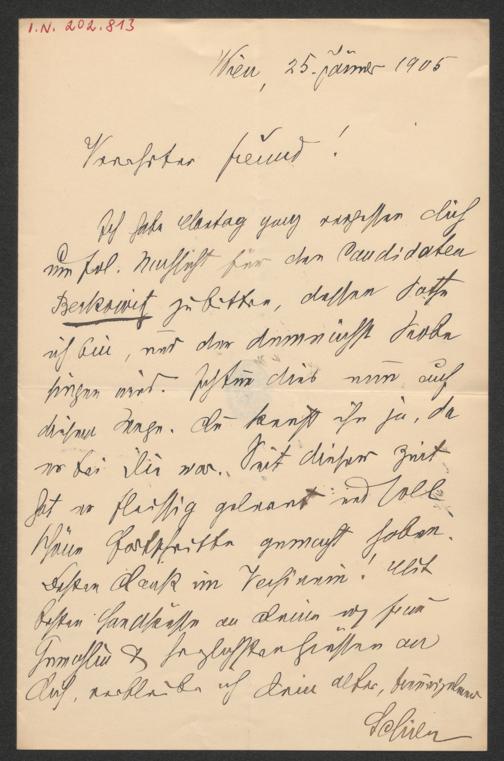 I.N. 202.813
Wien, 25. Jänner 1905
Verehrter Freund!
Ich habe Montag ganz vergessen Dich
um frl. Nachsicht für den Candidaten
Berkowitz zu bitten, dessen Pathe
ich bin, und der demnächst Probe
singen wird. Ich tue dies nun auf
diesem Wege. Du kennst ihn ja, da
er bei Dir war. Seit dieser Zeit
hat er fleissig gelernt und soll
schöne Fortschritte gemacht haben.
Besten Dank im Vorhinein! Mit
besten Handküssen an Deine Frau
Gemahlin & herzlichsten Grüssen an
Dich, verbleibe ich Dein alter,